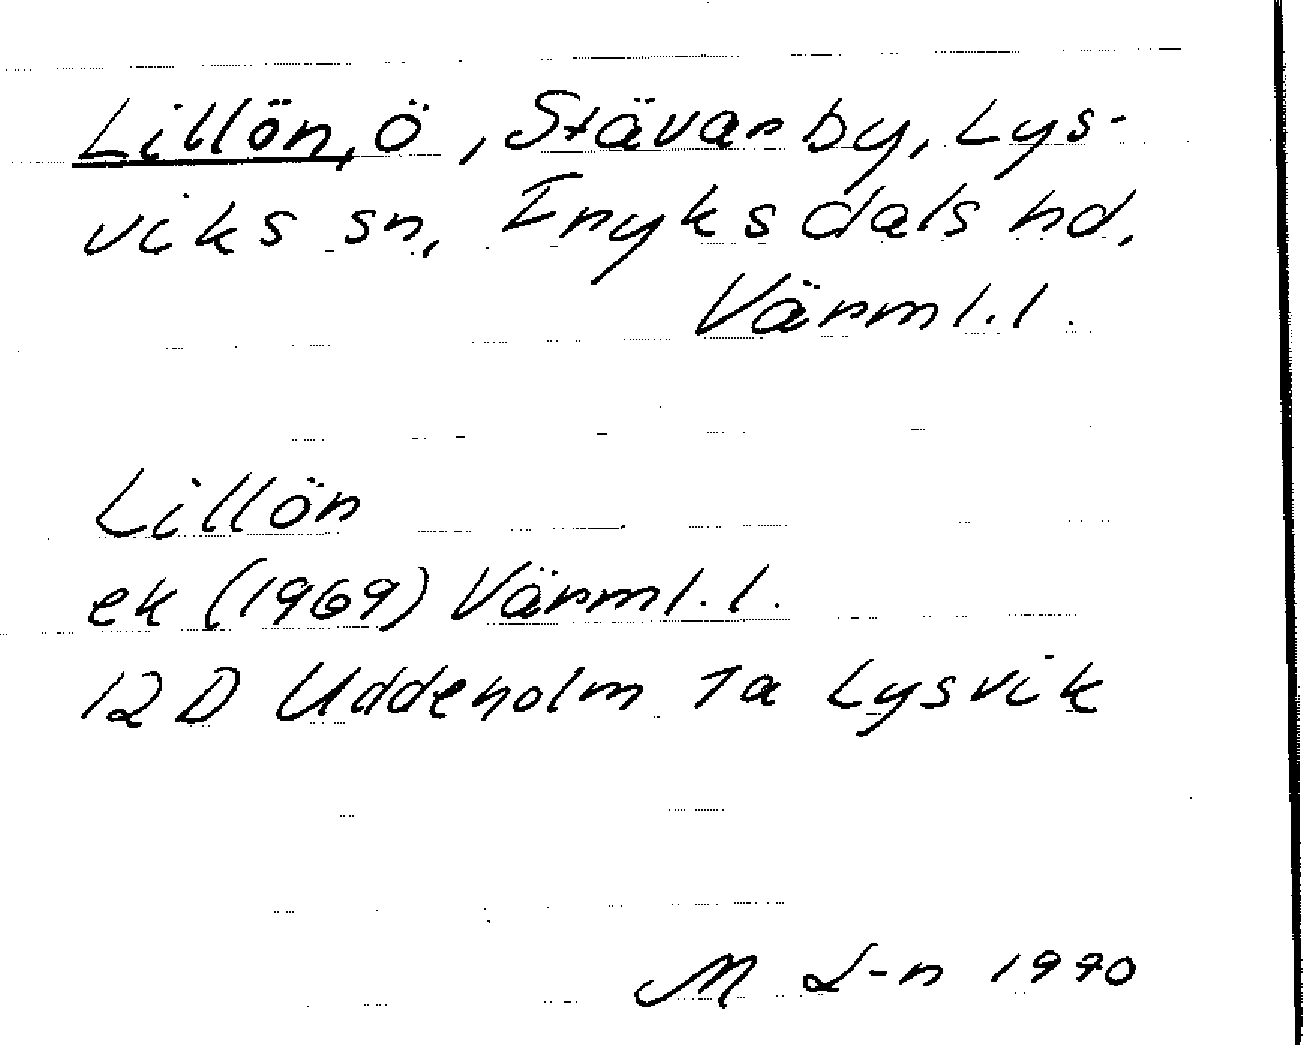 Lillön, ö, Stävarby, Lys-
viks sn, Fryksdals hd,
Värml.l.
Lillön
ek (1969) Värml.l.
12D Uddeholm 1a Lysvik
M L-n 1990